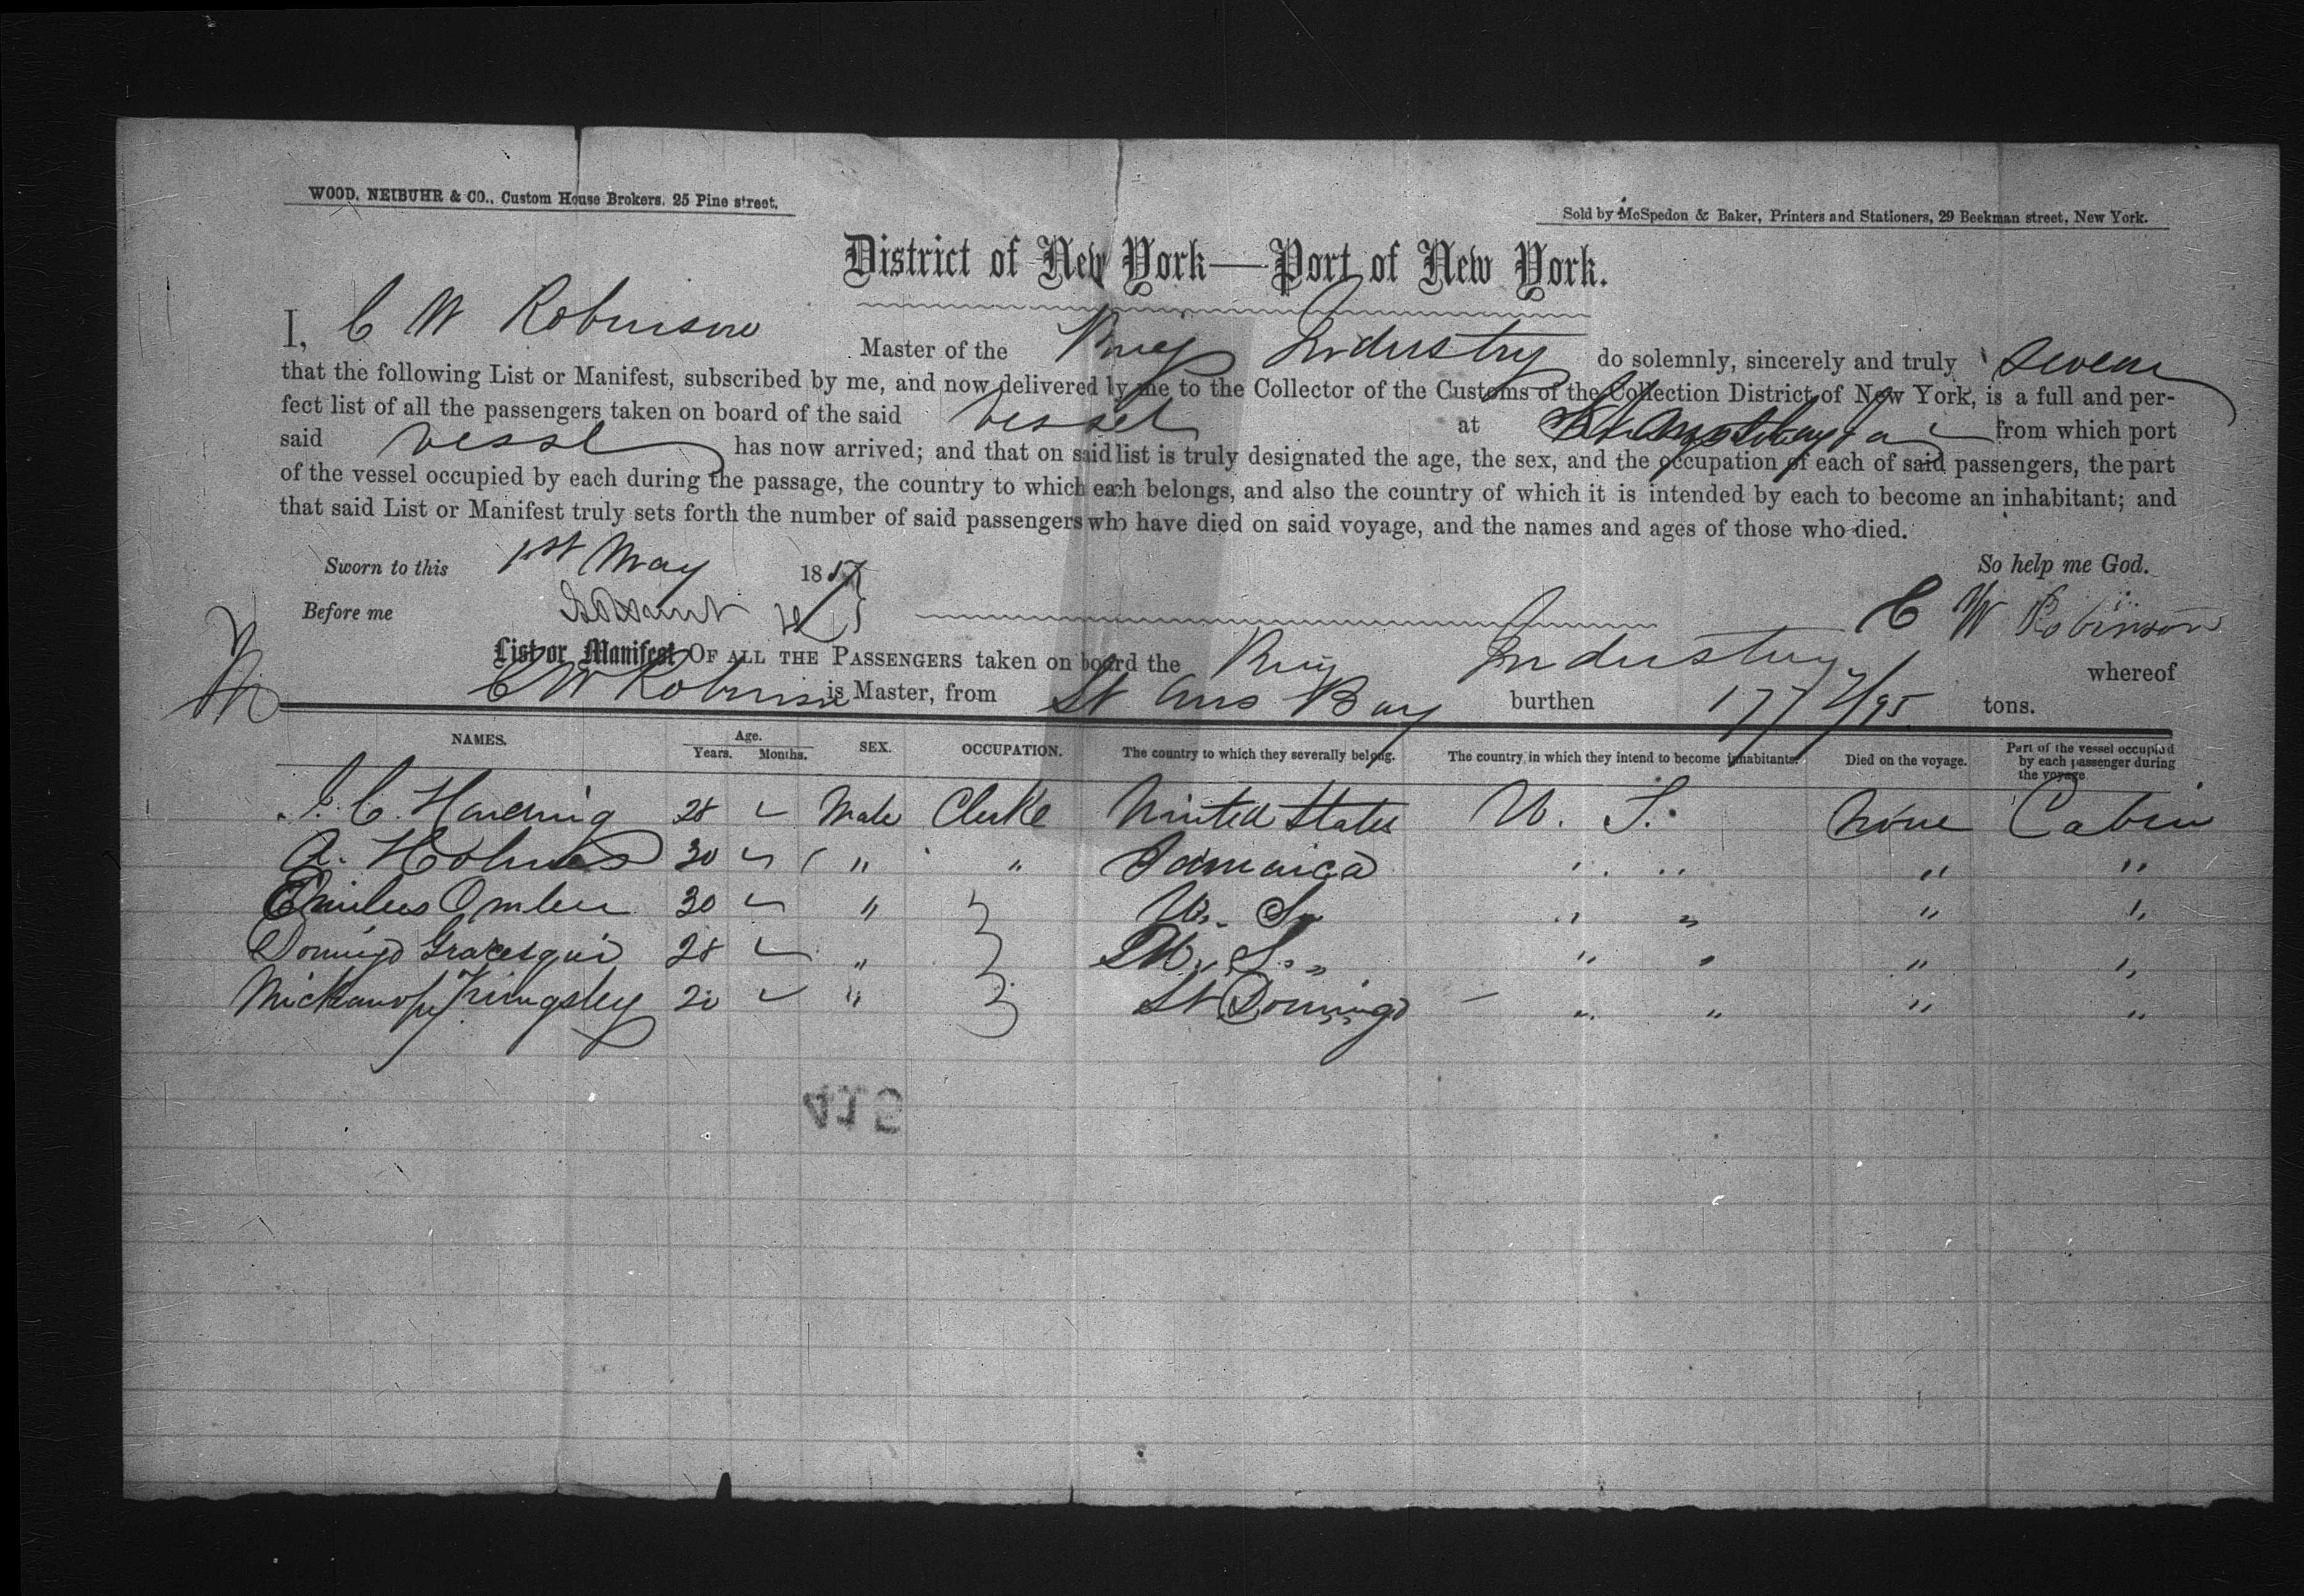 WOOD, NEIBUHR & CO., Custom House Brokers. 25 Pine street.
Sold by McSpedon & Baker, Printers and Stationers, 29 Beekman street, New York.
District of New York—Port of New York.
I, C W Robinson Master of the Brig Industry do solemnly, sincerely and truly swear
that the following List or Manifest, subscribed by me, and now delivered by me to the Collector of the Customs of the Collection District of New York, is a full and per-
fect list of all the passengers taken on board of the said vessel at from which port
said vessel has now arrived; and that on said list is truly designated the age, the sex, and the occupation of each of said passengers, the part
of the vessel occupied by each during the passage, the country to which each belongs, and also the country of which it is intended by each to become an inhabitant; and
that said List or Manifest truly sets forth the number of said passengers who have died on said voyage, and the names and ages of those who died.
Sworn to this 1st May 1857 So help me God.
Before me C W Robinson
List or Manifest OF ALL THE PASSENGERS taken on board the Brig Industry whereof
C W Robinson is Master, from St Anns Bay burthen 177 /95 tons.
NAMES. Age. Years. Months. SEX. OCCUPATION. The country to which they severally belong. The country in which they intend to become inhabitants. Died on the voyage. Part of the vessel occupied by each passenger during the voyage
C. Harding 28 Male Clerke United States U. S. None Cabin
A. Holmes 30 " " Jamaica " " " "
30 " U. S. " " " "
Domingo 28 " U. S. " " " "
Kingsley 20 " St Domingo " " " "
415